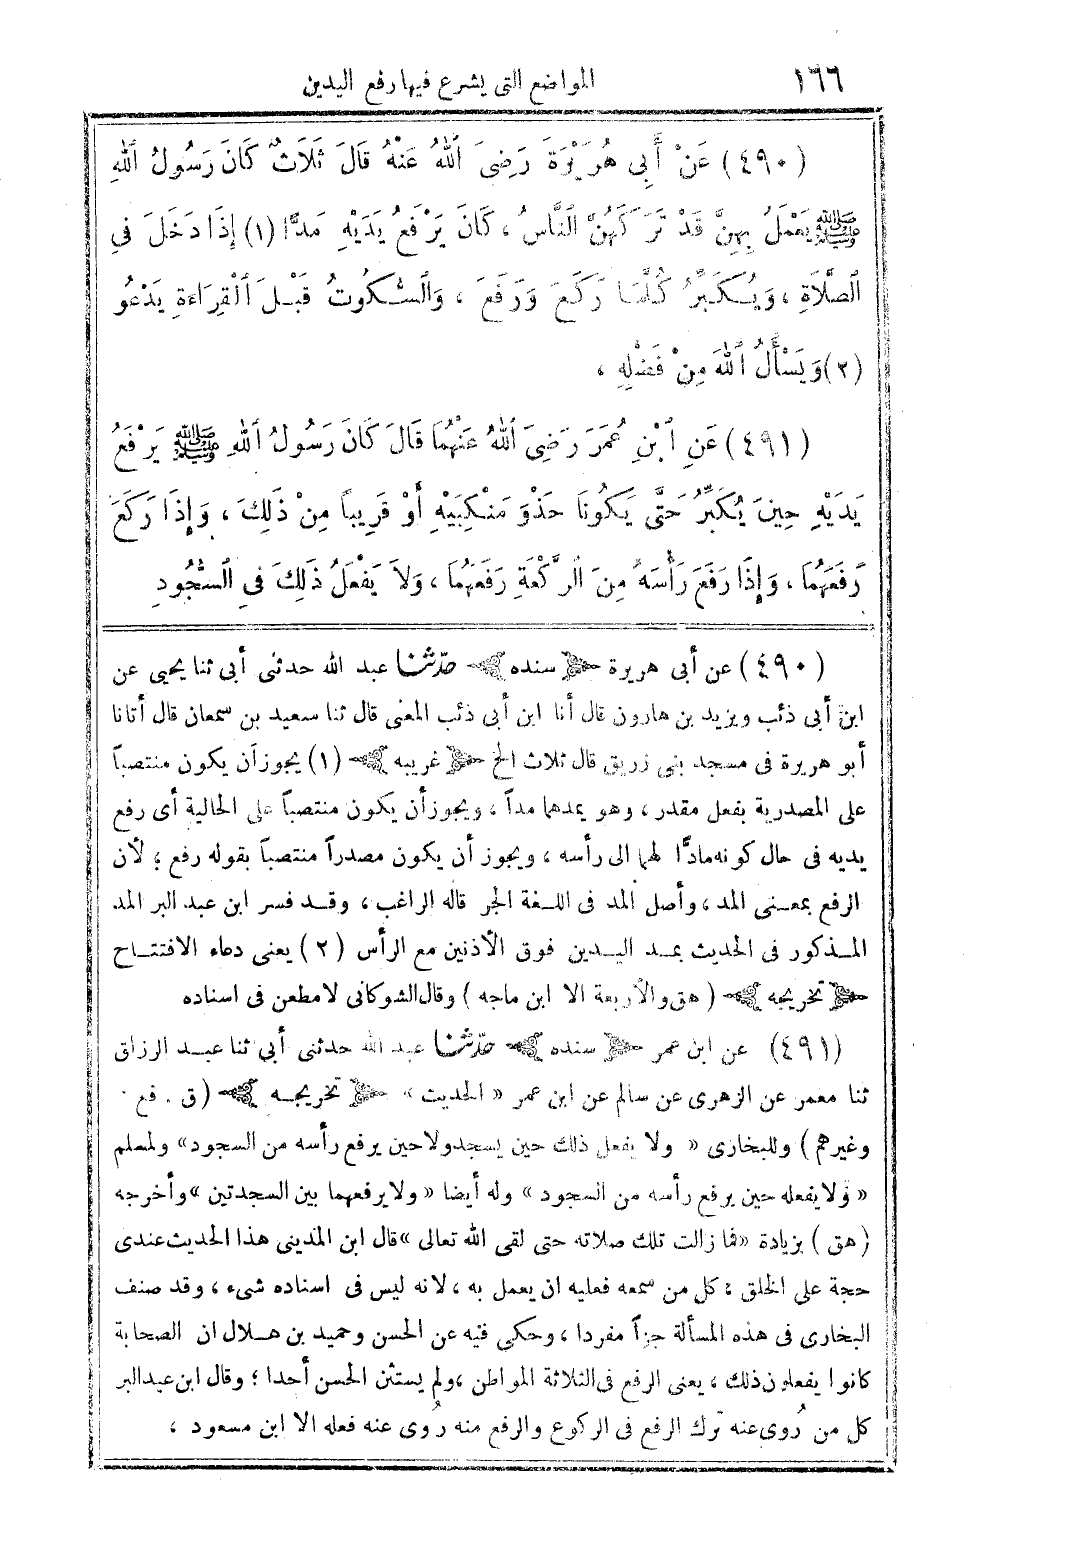 ١٦٦ المواضع التى يشرع فيها رفع اليدين
(٤٩٠) عَنْ أَبِى هُرَيْرَةَ رَضِىَ ٱللّٰهُ عَنْهُ قَالَ ثَلَاثٌ كَانَ رَسُولُ ٱللّٰهِ
ﷺ يَعْمَلُ بِهِنَّ قَدْ تَرَكَهُنَّ ٱلنَّاسُ ، كَانَ يَرْفَعُ يَدَيْهِ مَدًّا (١) إِذَا دَخَلَ فِى
ٱلصَّلَاةِ ، وَيُكَبِّرُ كُلَّمَا رَكَعَ وَرَفَعَ ، وَٱلسُّكُوتُ قَبْلَ ٱلْقِرَاءَةِ يَدْعُو
(٢) وَيَسْأَلُ ٱللّٰهَ مِنْ فَضْلِهِ ،
(٤٩١) عَنِ ٱبْنِ عُمَرَ رَضِىَ ٱللّٰهُ عَنْهُمَا قَالَ كَانَ رَسُولُ ٱللّٰهِ ﷺ يَرْفَعُ
يَدَيْهِ حِينَ يُكَبِّرُ حَتَّى يَكُونَا حَذْوَ مَنْكِبَيْهِ أَوْ قَرِيبًا مِنْ ذَلِكَ ، وَإِذَا رَكَعَ
رَفَعَهُمَا ، وَإِذَا رَفَعَ رَأْسَهُ مِنَ ٱلرَّكْعَةِ رَفَعَهُمَا ، وَلَا يَفْعَلُ ذَلِكَ فِى ٱلسُّجُودِ
(٤٩٠) عن أبى هريرة سنده حدّثنا عبد الله حدثنى أبى ثنا يحيى عن
ابن أبى ذئب ويزيد بن هارون قال أنا ابن أبى ذئب المعنى قال ثنا سعيد بن سمعان قال أتانا
أبو هريرة فى مسجد بنى زريق قال ثلاث الخ غريبه (١) يجوز أن يكون منتصباً
على المصدرية بفعل مقدر ، وهو يمدهما مداً ، ويجوز أن يكون منتصباً على الحالية أى رفع
يديه فى حال كونه مادًّا لهما الى رأسه ، ويجوز أن يكون مصدراً منتصباً بقوله رفع ؛ لأن
الرفع بمعنى المد ، وأصل المد فى اللغة الجر قاله الراغب ، وقد فسر ابن عبد البر المد
المذكور فى الحديث بمد اليدين فوق الأذنين مع الرأس (٢) يعنى دعاء الافتتاح
تخريجه (هق والأربعة الا ابن ماجه) وقال الشوكانى لا مطعن فى اسناده
(٤٩١) عن ابن عمر سنده حدّثنا عبد الله حدثنى أبى ثنا عبد الرزاق
ثنا معمر عن الزهرى عن سالم عن ابن عمر « الحديث » تخريجه (ق . فع .
وغيرهم) وللبخارى « ولا يفعل ذلك حين يسجد ولا حين يرفع رأسه من السجود » ولمسلم
« ولا يفعله حين يرفع رأسه من السجود » وله أيضا « ولا يرفعهما بين السجدتين » وأخرجه
(هق) بزيادة « فما زالت تلك صلاته حتى لقى الله تعالى » قال ابن المدينى هذا الحديث عندى
حجة على الخلق ؛ كل من سمعه فعليه ان يعمل به ، لانه ليس فى اسناده شىء ، وقد صنف
البخارى فى هذه المسألة جزأ مفردا ، وحكى فيه عن الحسن وحميد بن هلال ان الصحابة
كانوا يفعلون ذلك ، يعنى الرفع فى الثلاثة المواطن ، ولم يستثن الحسن أحدا ؛ وقال ابن عبد البر
كل من رُوى عنه ترك الرفع فى الركوع والرفع منه رُوى عنه فعله الا ابن مسعود ،